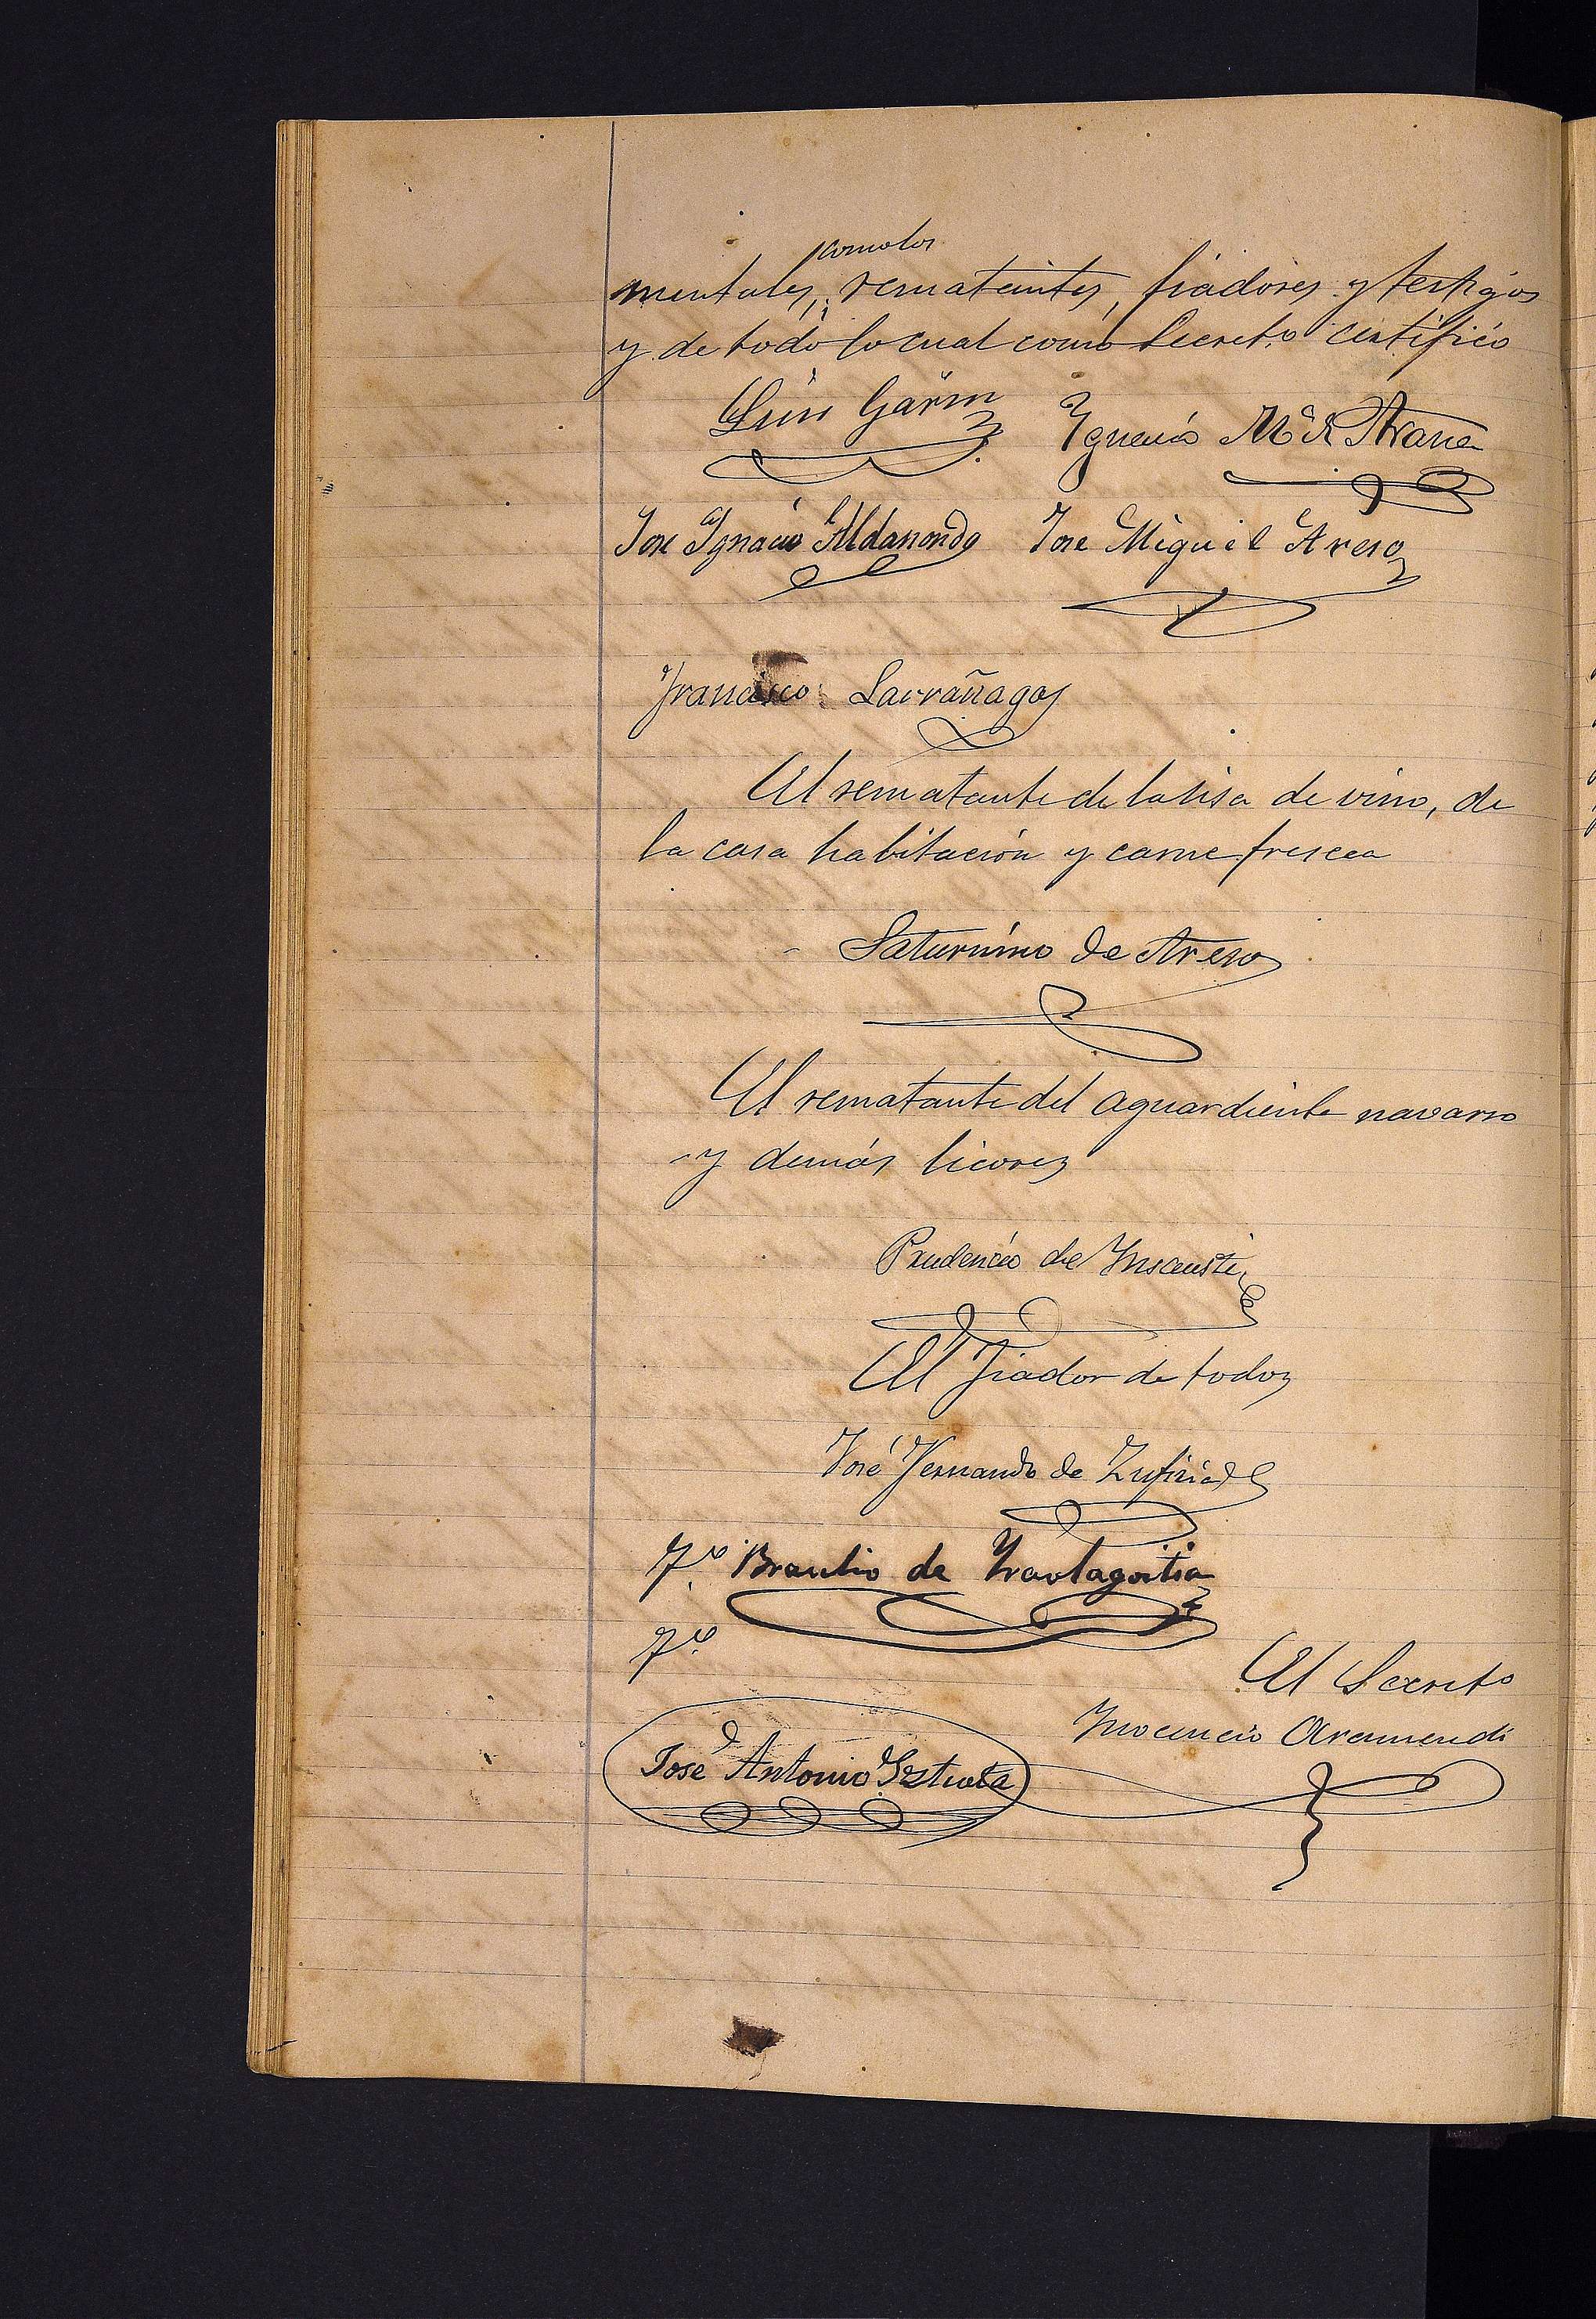 como los
mentales, rematantes, fiadores y testigos
y de todo lo cual como Secret.o certifico
Luis Garin Ygnacio M.a Arana
Jose Ygnacio Aldasondo Jose Miguel Areso
Francisco Larrañaga
El rematante de la sisa de vino, de
la casa habitación y carne fresca
Saturnino de Areso
El rematante del aguardiente navarro
y demás licores
Prudencio de Ynsausti
El Fiador de todos
José Fernando de Zufiria
T.o Braulio de Yraolagoitia
T.o
El Secreto
Ynocencio Aramendi
José Antonio Yztueta